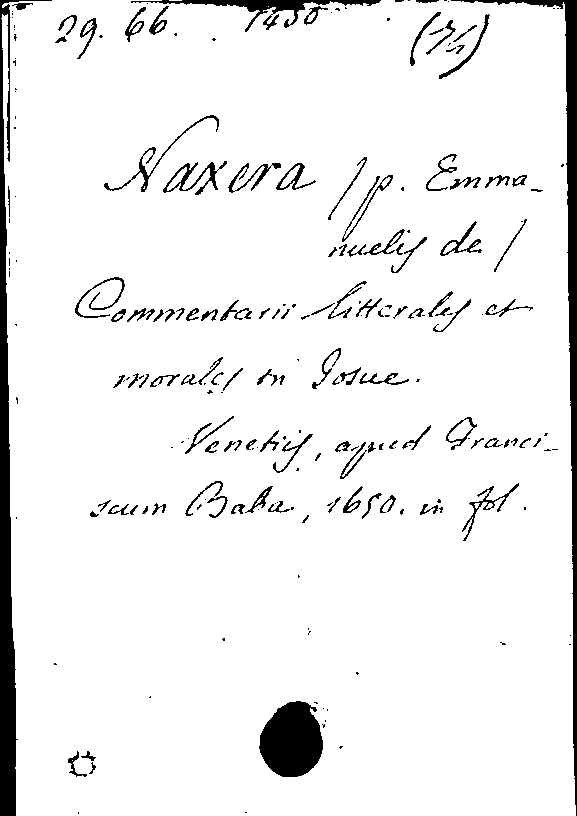 29. 66. 1430
Naxera /p. Emma-
nuelis de /
Commentarii litterales et
morales in Josue.
Venetiis, apud Franci-
scum Baba, 1650. in fol.